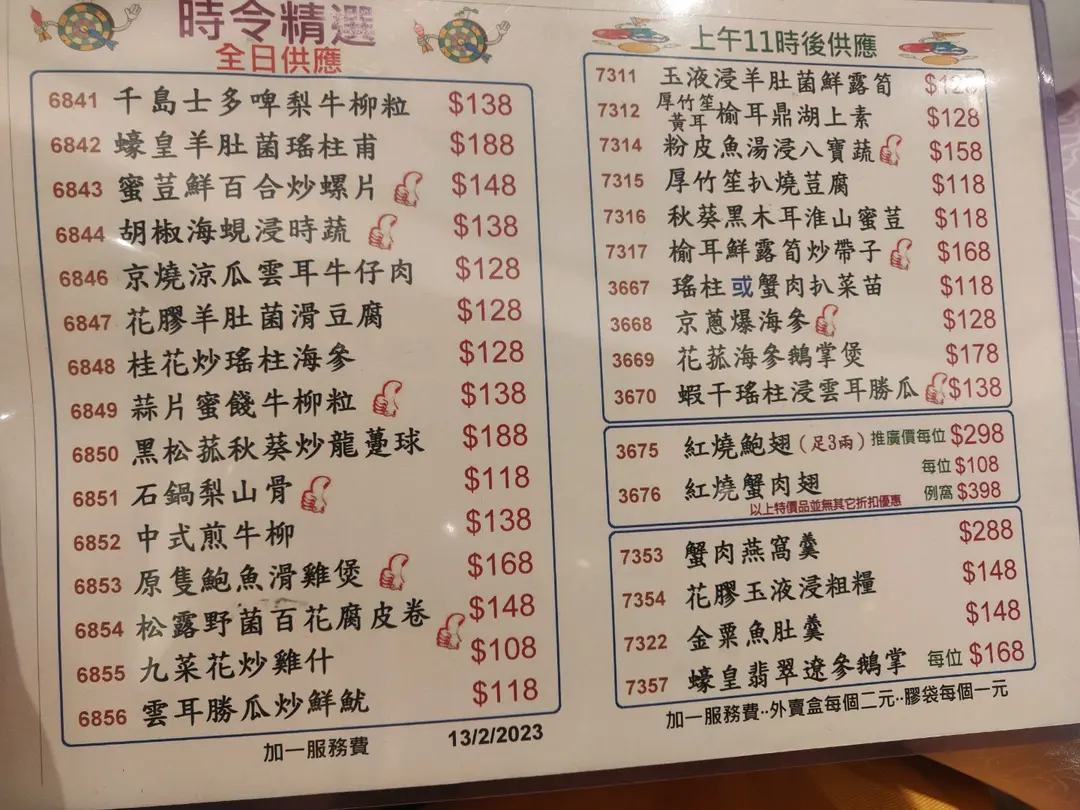 時令精選
全日供應
6841 千島士多啤梨牛柳粒 $138
6842 蠔皇羊肚菌瑤柱甫 $188
6843 蜜荳鮮百合炒螺片 $148
6844 胡椒海蜆浸時蔬 $138
6846 京燒涼瓜雲耳牛仔肉 $128
6847 花膠羊肚菌滑豆腐 $128
6848 桂花炒瑤柱海參 $128
6849 蒜片蜜餞牛柳粒 $138
6850 黑松菰秋葵炒龍躉球 $188
6851 石鍋梨山骨 $118
6852 中式煎牛柳 $138
6853 原隻鮑魚滑雞煲 $168
6854 松露野菌百花腐皮卷 $148
6855 九菜花炒雞什 $108
6856 雲耳勝瓜炒鮮魷 $118
加一服務費 13/2/2023
上午11時後供應
7311 玉液浸羊肚菌鮮露筍 $128
7312 厚竹笙黃耳榆耳鼎湖上素 $128
7314 粉皮魚湯浸八寶蔬 $158
7315 厚竹笙扒燒荳腐 $118
7316 秋葵黑木耳淮山蜜荳 $118
7317 榆耳鮮露筍炒帶子 $168
3667 瑤柱或蟹肉扒菜苗 $118
3668 京蔥爆海參 $128
3669 花菰海參鵝掌煲 $178
3670 蝦干瑤柱浸雲耳勝瓜 $138
3675 紅燒鮑翅(足3兩) 推廣價每位 $298
3676 紅燒蟹肉翅 每位 $108
例窩 $398
以上特價品並無其它折扣優惠
7353 蟹肉燕窩羹 $288
7354 花膠玉液浸粗糧 $148
7322 金粟魚肚羹 $148
7357 蠔皇翡翠遼參鵝掌 每位 $168
加一服務費··外賣盒每個二元··膠袋每個一元